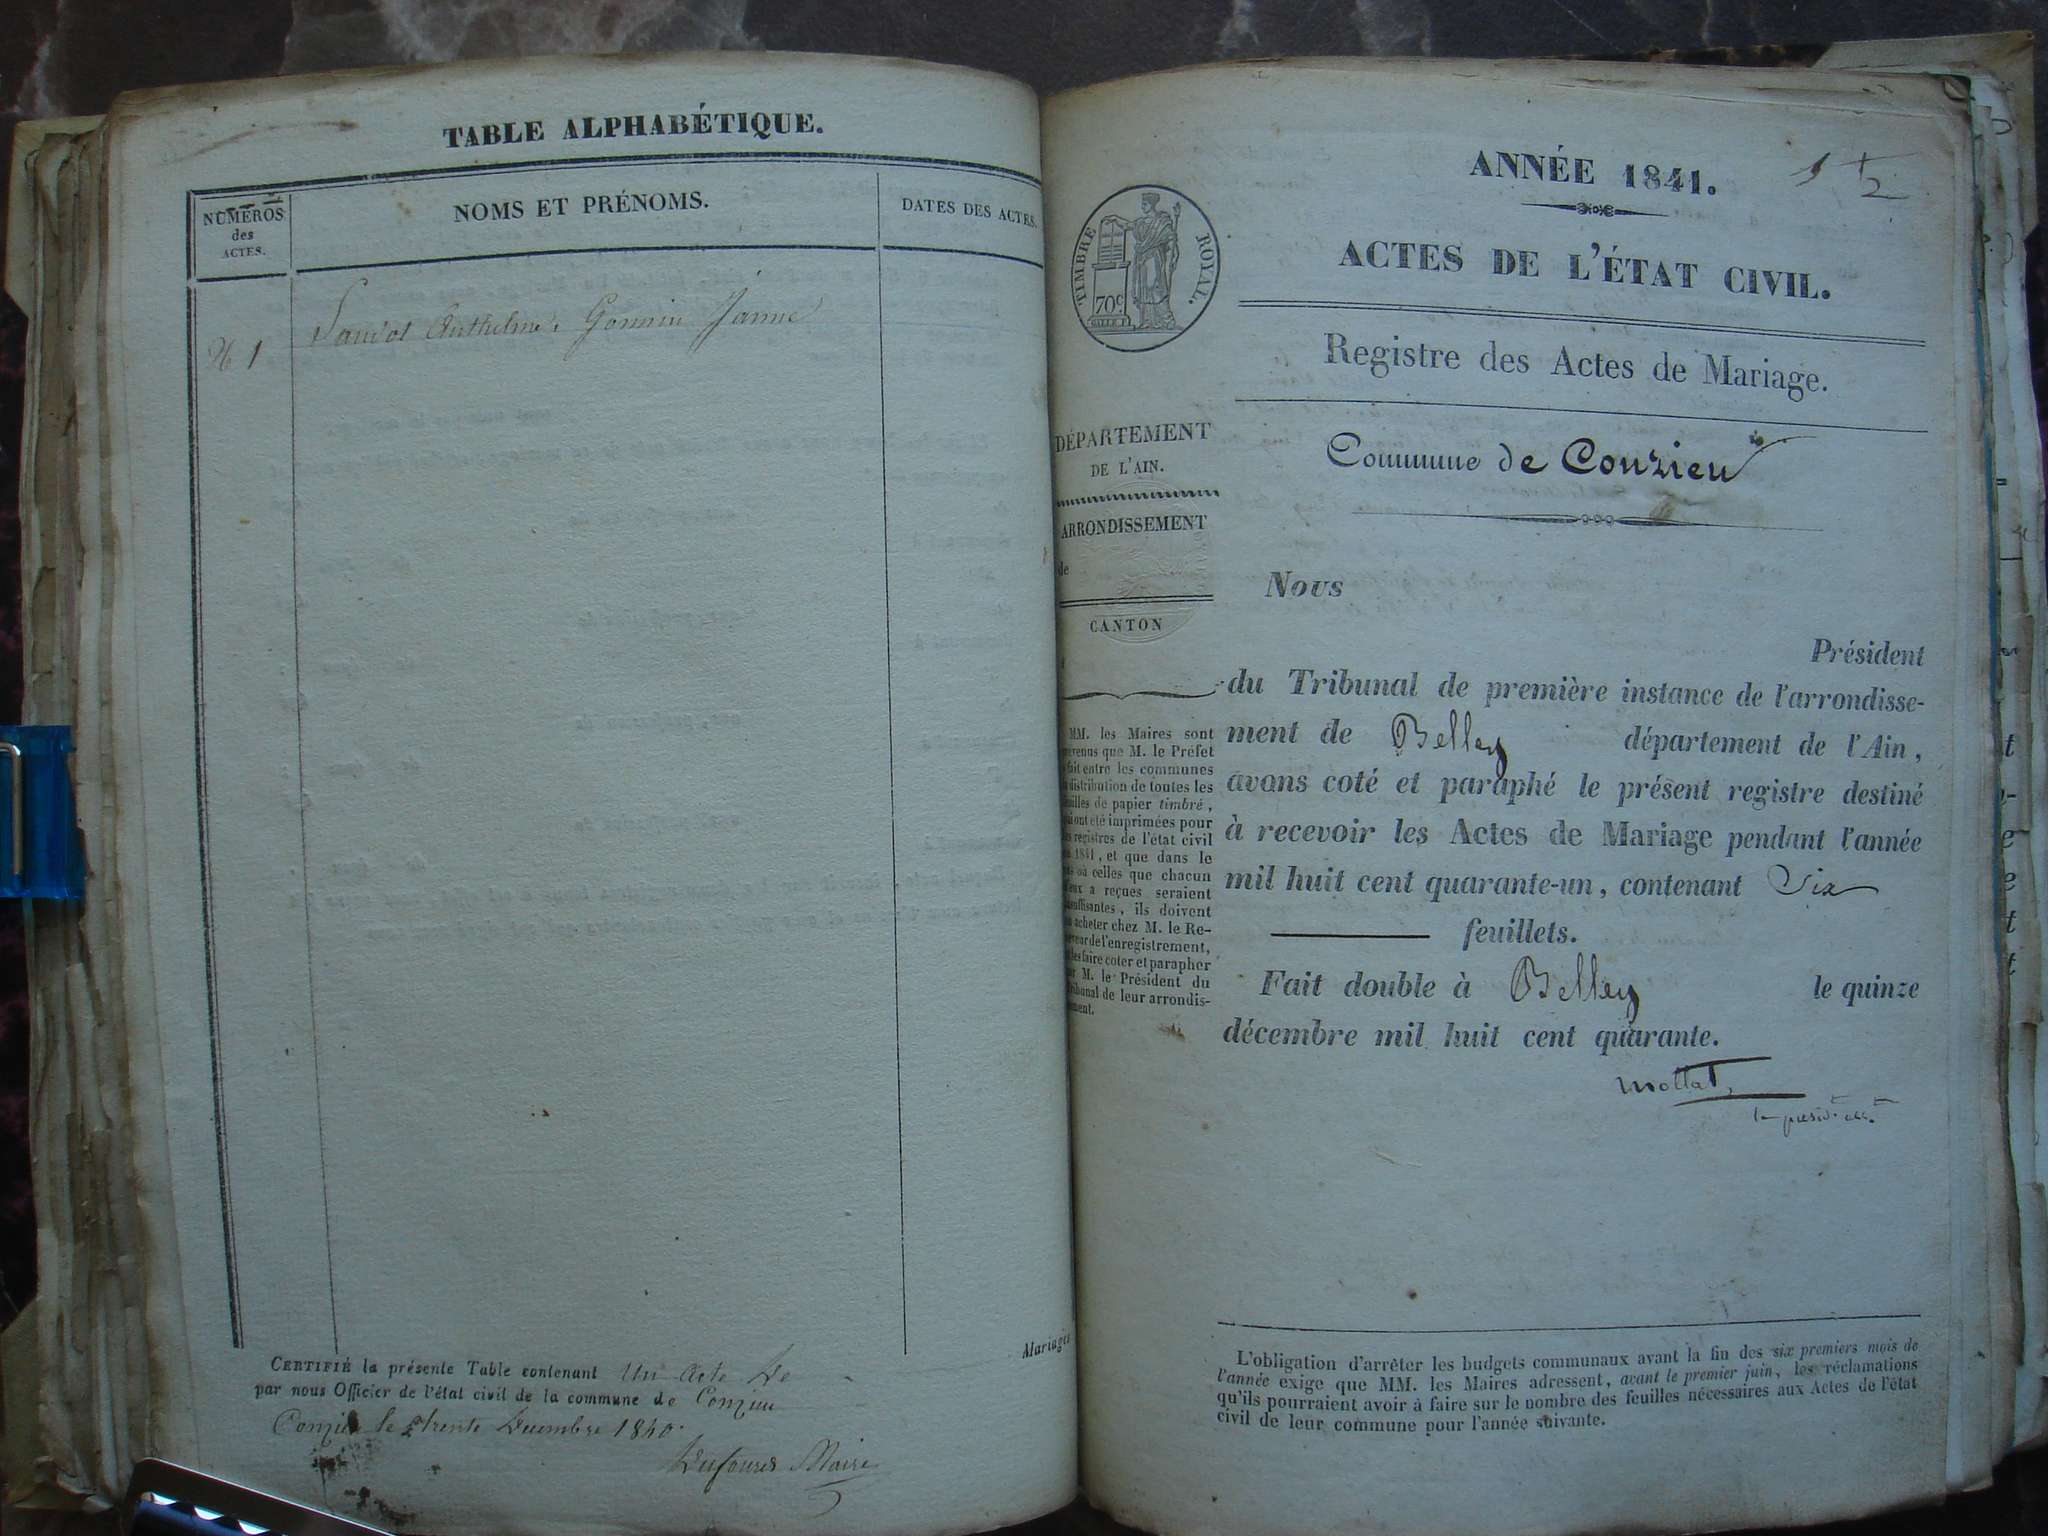 TABLE ALPHABÉTIQUE.
NUMÉROS
des
ACTES.
NOMS ET PRÉNOMS.
DATES DES ACTES.
N 1
Anthelme, Gonnin Janne
Mariages
CERTIFIÉ la présente Table contenant Un acte De
par nous Officier de l'état civil de la commune de Conzieu
Conzieu le trente Decembre 1840.
Dufours Maire
ANNÉE 1841.
1 2
ACTES DE L'ÉTAT CIVIL.
TIMBRE ROYAL.
70c
Registre des Actes de Mariage.
Commune de Conzieu
DÉPARTEMENT
DE L'AIN.
ARRONDISSEMENT
de
CANTON
Nous
Président
du Tribunal de première instance de l'arrondisse-
ment de Belley département de l'Ain,
avons coté et paraphé le présent registre destiné
à recevoir les Actes de Mariage pendant l'année
mil huit cent quarante-un, contenant Six
feuillets.
Fait double à Belley le quinze
décembre mil huit cent quarante.
Mottat,
MM. les Maires sont
que M. le Préfet
fait entre les communes
distribution de toutes les
feuilles de papier timbré,
ont été imprimées pour
registres de l'état civil
1841, et que dans le
où celles que chacun
d'eux a reçues seraient
insuffisantes, ils doivent
acheter chez M. le Re-
ceveur de l'enregistrement,
les faire coter et parapher
M. le Président du
Tribunal de leur arrondis-
sement.
L'obligation d'arrêter les budgets communaux avant la fin des six premiers mois de
l'année exige que MM. les Maires adressent, avant le premier juin, les réclamations
qu'ils pourraient avoir à faire sur le nombre des feuilles nécessaires aux Actes de l'état
civil de leur commune pour l'année suivante.